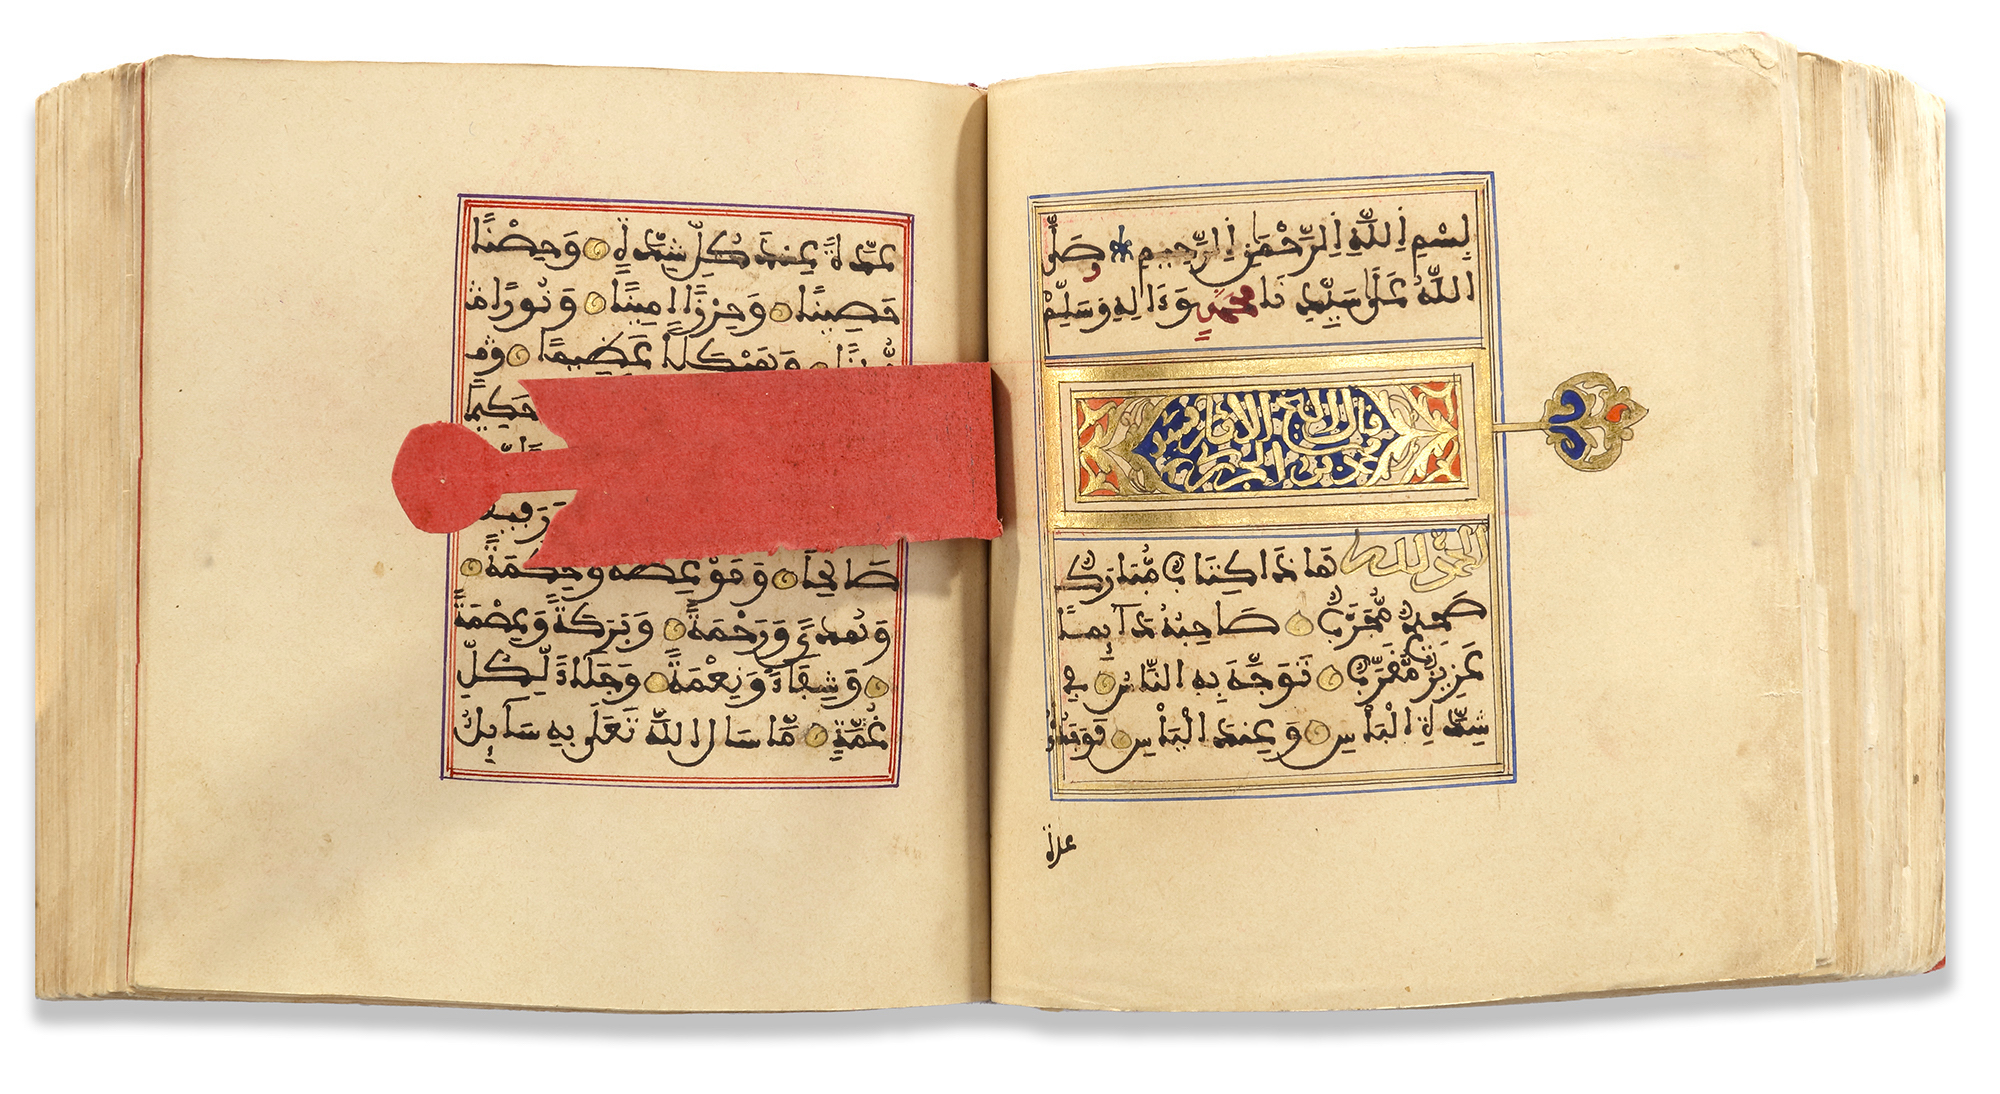 بِسْمِ اِللَّهِ اِلرَّحْمَٰنِ اِلرَّحِيمِ وَصَلَّى
اللَّهُ عَلَى سَيِّدِنَا مُحَمَّدٍ وَءَالِهِ وَسَلِّمْ
قال الشيخ الإمام
بن الجزري
الحمد لله هَاذَا كِتَابٌ مُّبَارَكٌ
مُّجَرَّبٌ صَاحِبُهُ
عَزِيزٌ مُّقَرَّبٌ تَوَجَّهَ بِهِ النَّاسُ فِي
شِدَّةِ الْبَأْسِ وَعِنْدَ الْيَأْسِ فَوَجَدُوهُ
عدة
عُدَّةً عِنْدَ كُلِّ شِدَّةٍ وَحِصْنًا
حَصِينًا وَحِرْزًا اَمِينًا وَنُورًا مُّ
وَهَيْكَلاً عَظِيمًا
حَكِيمًا
وَمَوْعِظَةً وَحِكْمَةً
وَهُدىً وَرَحْمَةً وَبَرَكَةً وَعِصْمَةً
وَشِفَاءً وَنِعْمَةً وَجَلَاءً لِّكُلِّ
غُمَّةٍ مَّا سَأَلَ اللَّهَ تَعَلَى بِهِ سَآئِلٌ